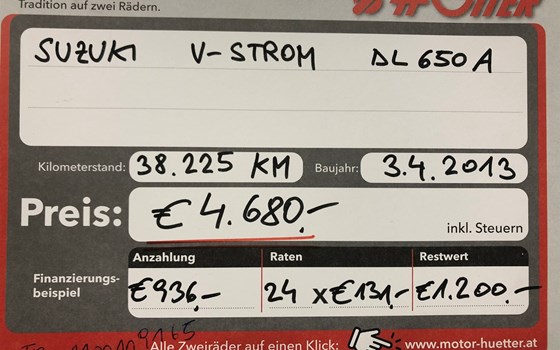 Tradition auf zwei Rädern.
HÜTTER
SUZUKI V-STROM DL 650 A
Kilometerstand: 38.225 KM Baujahr: 3.4.2013
Preis: € 4.680,-
inkl. Steuern
Anzahlung Raten Restwert
Finanzierungs-
beispiel
€936,- 24 x €131,- €1.200,-
Alle Zweiräder auf einen Klick: www.motor-huetter.at